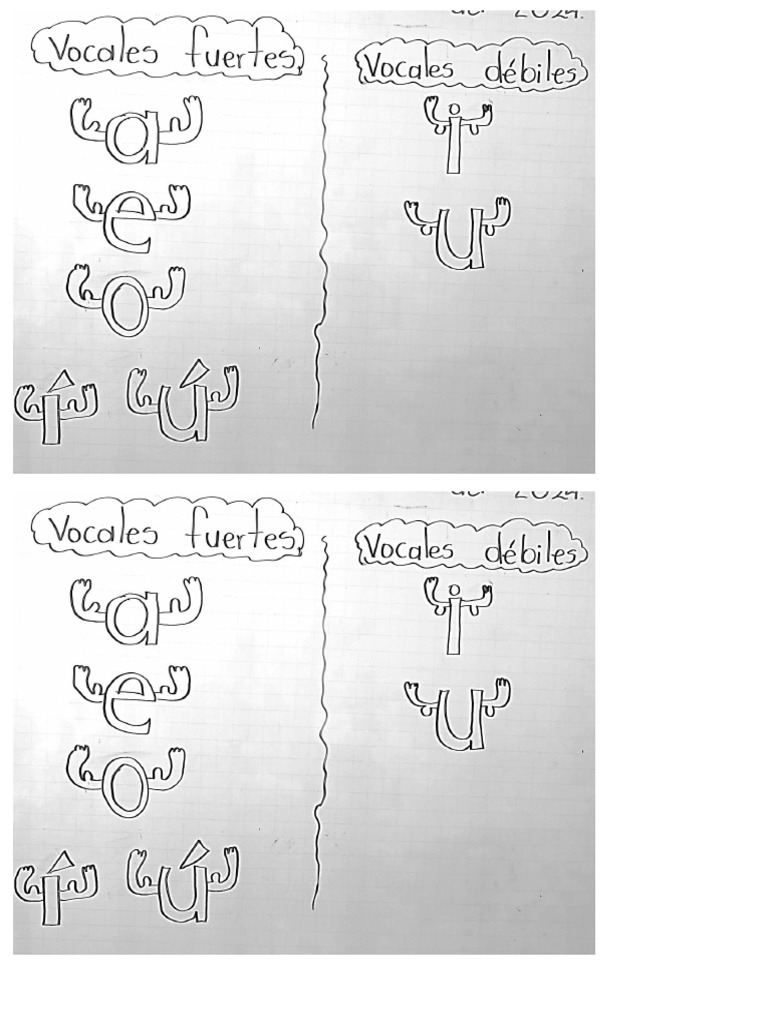 2024.
Vocales fuertes
Vocales débiles
a
i
e
u
o
í ú
2024.
Vocales fuertes
Vocales débiles
a
i
e
u
o
í ú